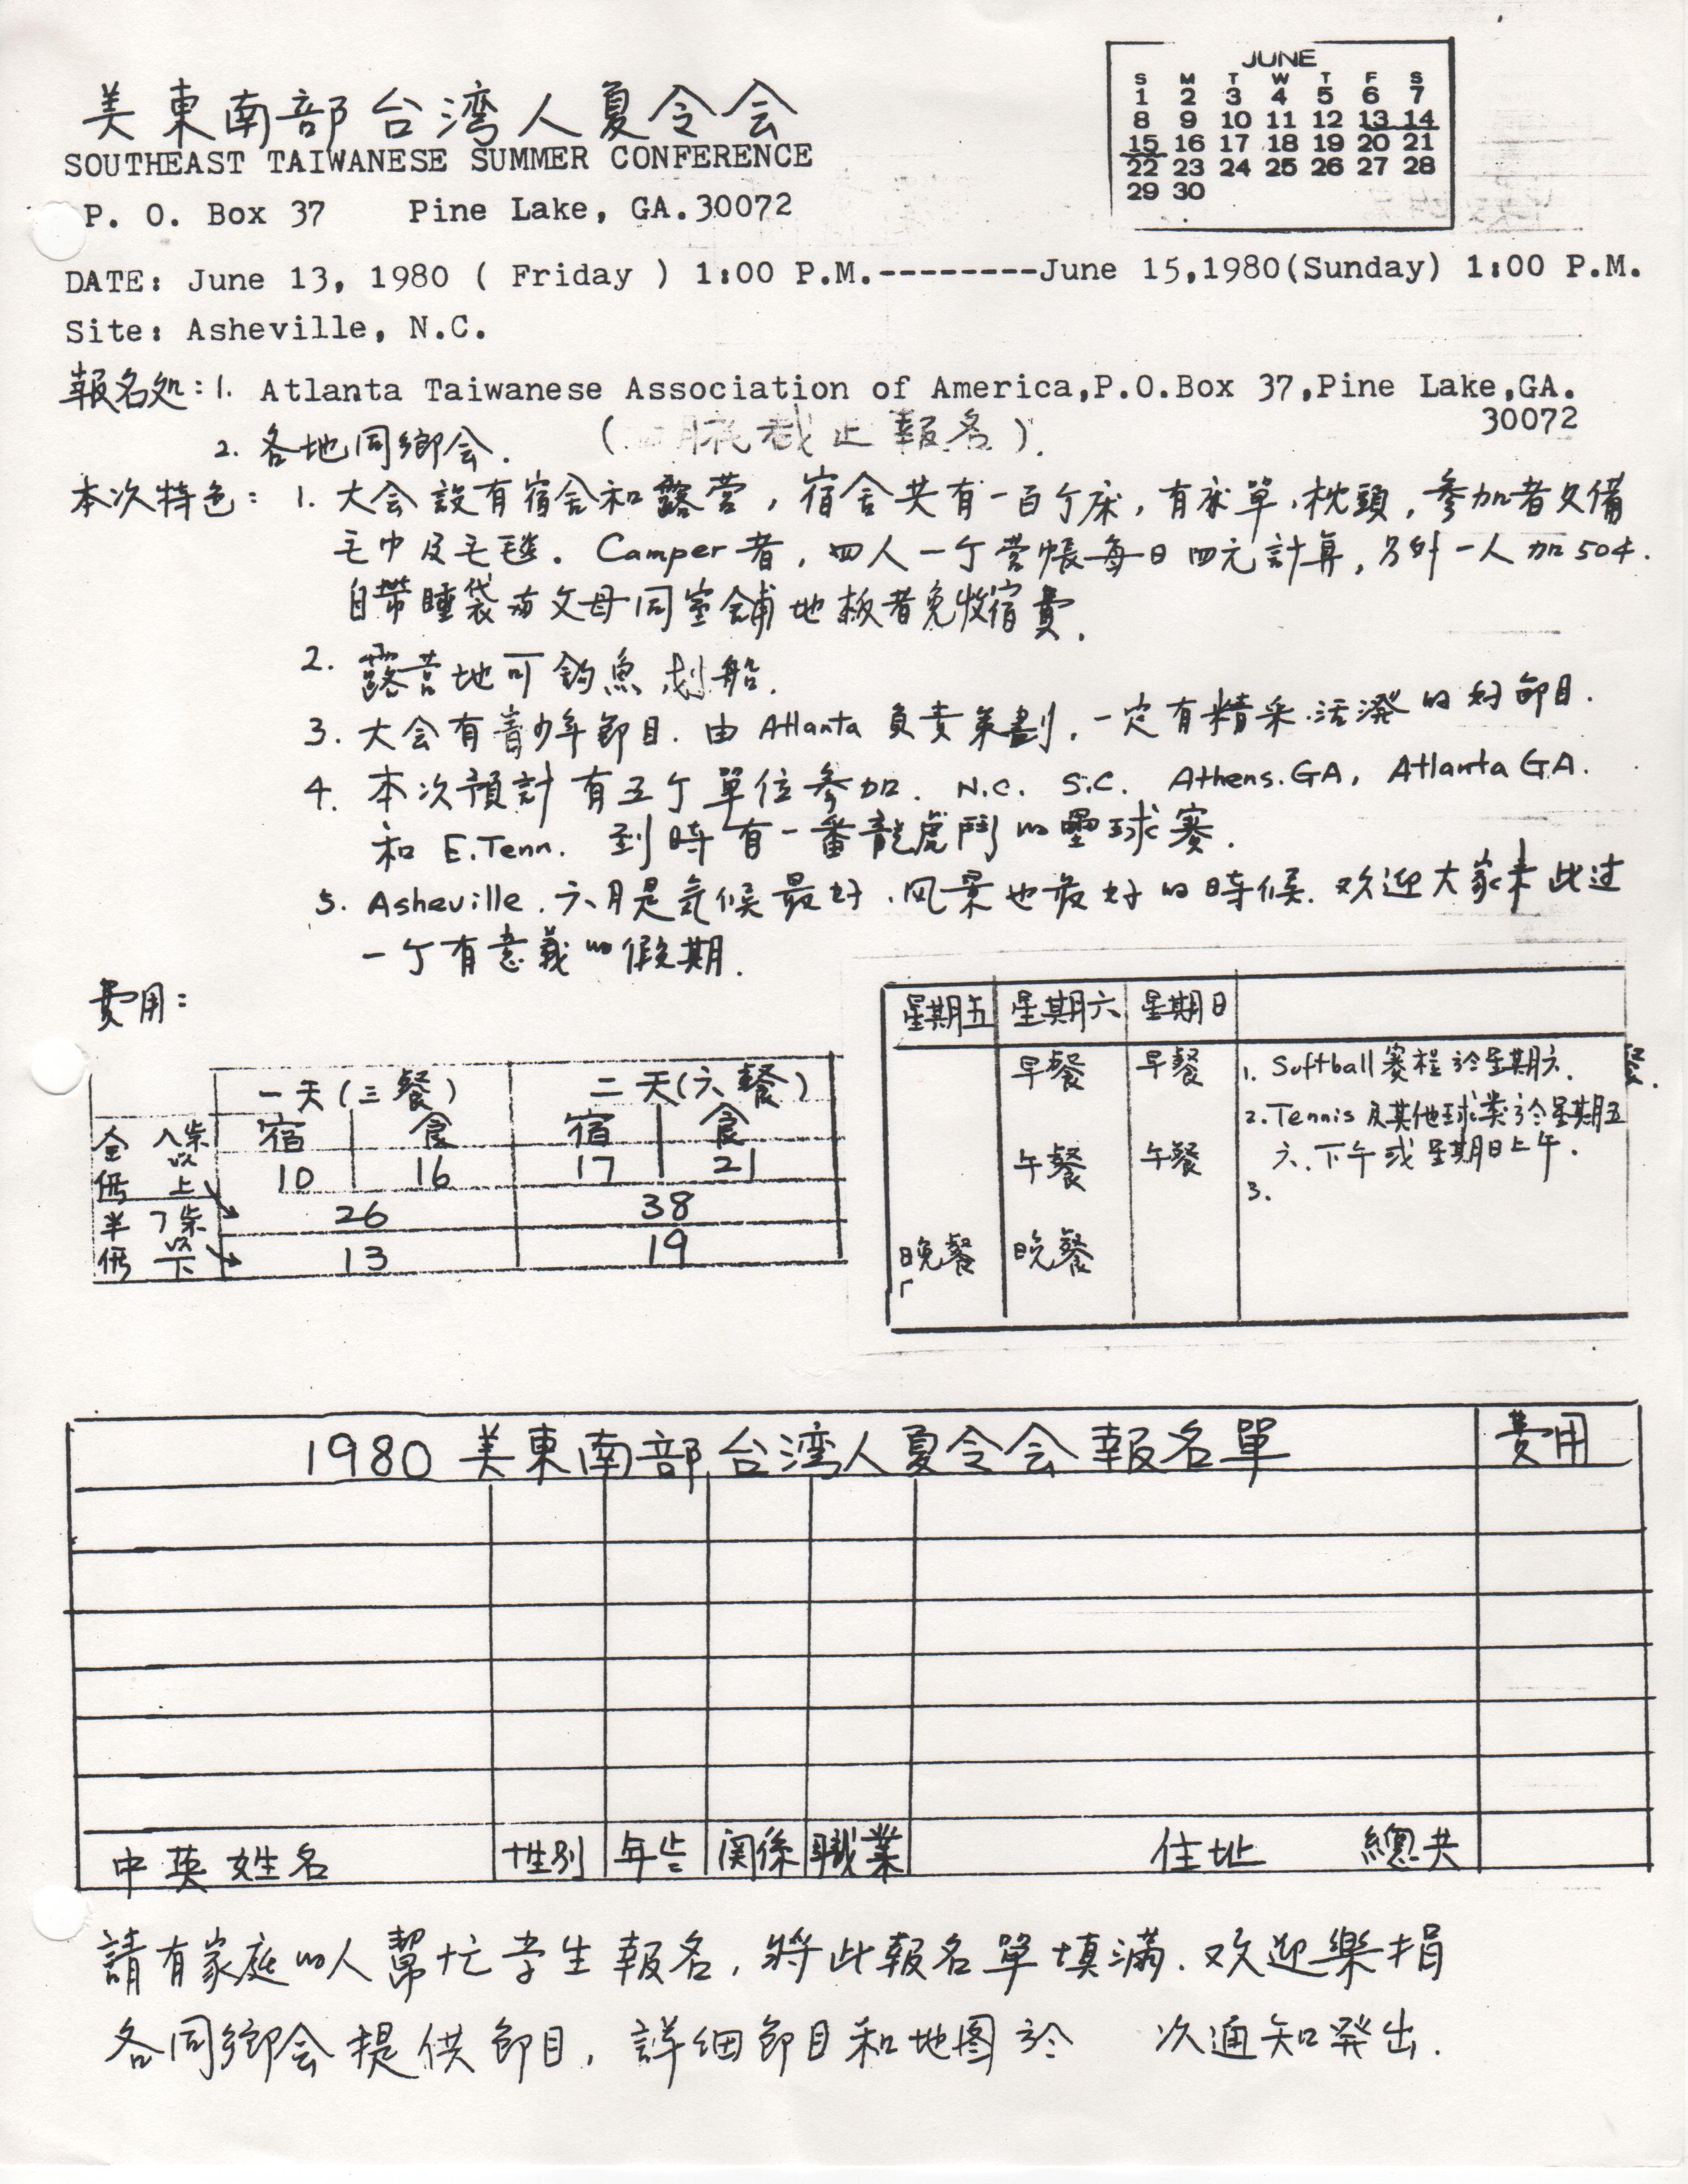 美東南部台湾人夏令会
SOUTHEAST TAIWANESE SUMMER CONFERENCE
P. O. Box 37 Pine Lake, GA.30072
JUNE
S M T W T F S
1 2 3 4 5 6 7
8 9 10 11 12 13 14
15 16 17 18 19 20 21
22 23 24 25 26 27 28
29 30
DATE: June 13, 1980 ( Friday ) 1:00 P.M.--------June 15,1980(Sunday) 1:00 P.M.
Site: Asheville, N.C.
報名処:1. Atlanta Taiwanese Association of America,P.O.Box 37,Pine Lake,GA.
30072
2. 各地同鄉会. ( 月底截止報名).
本次特色: 1. 大会設有宿舍和露营,宿舍共有一百个床,有床單,枕頭,參加者欠備
毛巾及毛毯. Camper者,四人一个营帳每日四元計算,另外一人加50¢.
自帶睡袋与父母同室舖地板者免收宿費.
2. 露营地可釣魚,划船.
3. 大会有青少年節目.由Atlanta負責策劃,一定有精采.活潑的好節目.
4. 本次預計有五个單位參加. N.C. S.C. Athens.GA, Atlanta GA.
和 E.Tenn. 到時有一番龍虎鬥的壘球賽.
5. Asheville.六月是気候最好.风景也最好的時候.欢迎大家来此过
一个有意義的假期.
費用:
一天(三餐) 二天(六餐)
宿 食 宿 食
全 八歲以上 10 16 17 21
価 26 38
半価 7歲以下 13 19
星期五 星期六 星期日
早餐 早餐 1. Softball賽程於星期六.
餐.
2.Tennis及其他球类於星期五
午餐 午餐 六.下午或星期日上午.
3.
晚餐 晚餐
1980 美東南部台湾人夏令会報名單 費用
中英姓名 性別 年歲 関係 職業 住址 總共
請有家庭的人幫忙学生報名,將此報名單填滿.欢迎樂捐
各同鄉会提供節目,詳細節目和地图於 次通知発出.